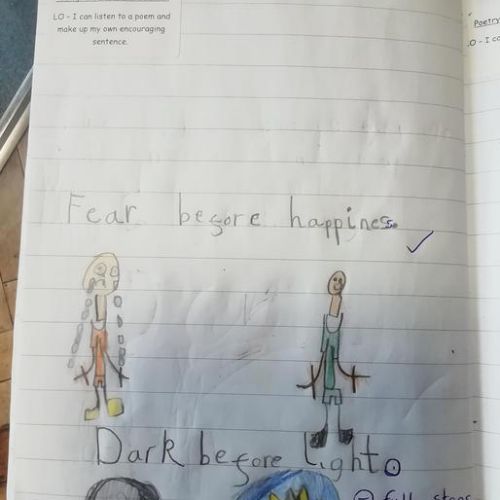 LO - I can listen to a poem and
make up my own encouraging
sentence.
Poetry
LO - I ca
Fear before happiness.
Dark before light.
full stops